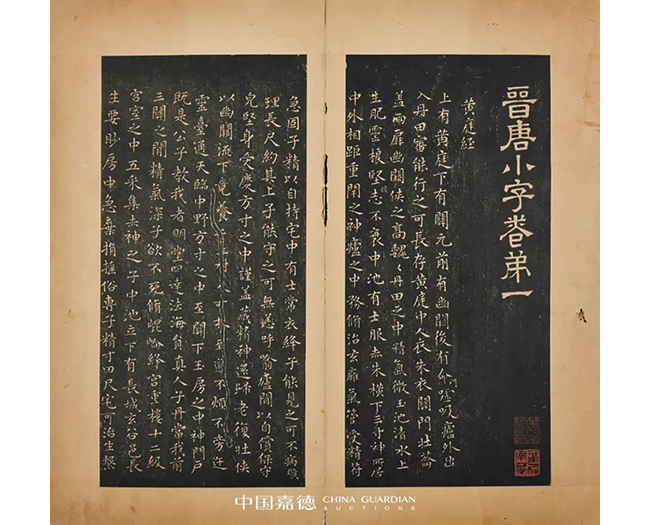 晉唐小字卷第一
黃庭經
上有黃庭下有關元前有幽闕後有命噓吸廬外出
入丹田審能行之可長存黃庭中人衣朱衣關門壯籥
蓋兩扉幽闕俠之高魏〻丹田之中精氣微玉池清水上
生肥靈根堅志不衰中池有士服赤朱橫下三寸神所居
中外相距重閉之神廬之中務脩治玄膺氣管受精符
急固子精以自持宅中有士常衣絳子能見之可不病橫
理長尺約其上子能守之可無恙呼噏廬間以自償保守
兒堅身受慶方寸之中謹蓋藏精神還歸老復壯俠
以幽闕流下竟養
不煩不旁迕
靈臺通天臨中野方寸之中至關下玉房之中神門戶
既是公子教我者明堂四達法海員真人子丹當我前
三關之間精氣深子欲不死脩崐崘絳宮重樓十二級
宮室之中五采集赤神之子中池立下有長城玄谷邑長
生要眇房中急棄捐搖俗專子精寸田尺宅可治生繫
中国嘉德 CHINA GUARDIAN
AUCTIONS